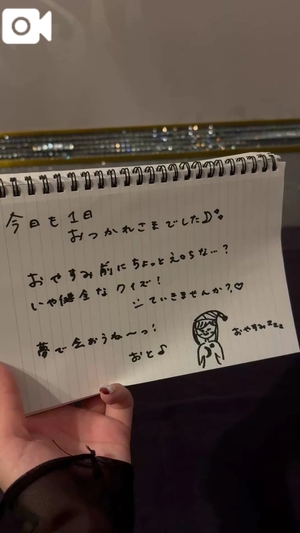 今日も1日
おつかれさまでしたD
おやすみ前にちょっとえ〇ちな…?
いや健全なクイズ!
していきませんか?♡
夢で会おうね〜っ!
おと♪
おやすみzzz